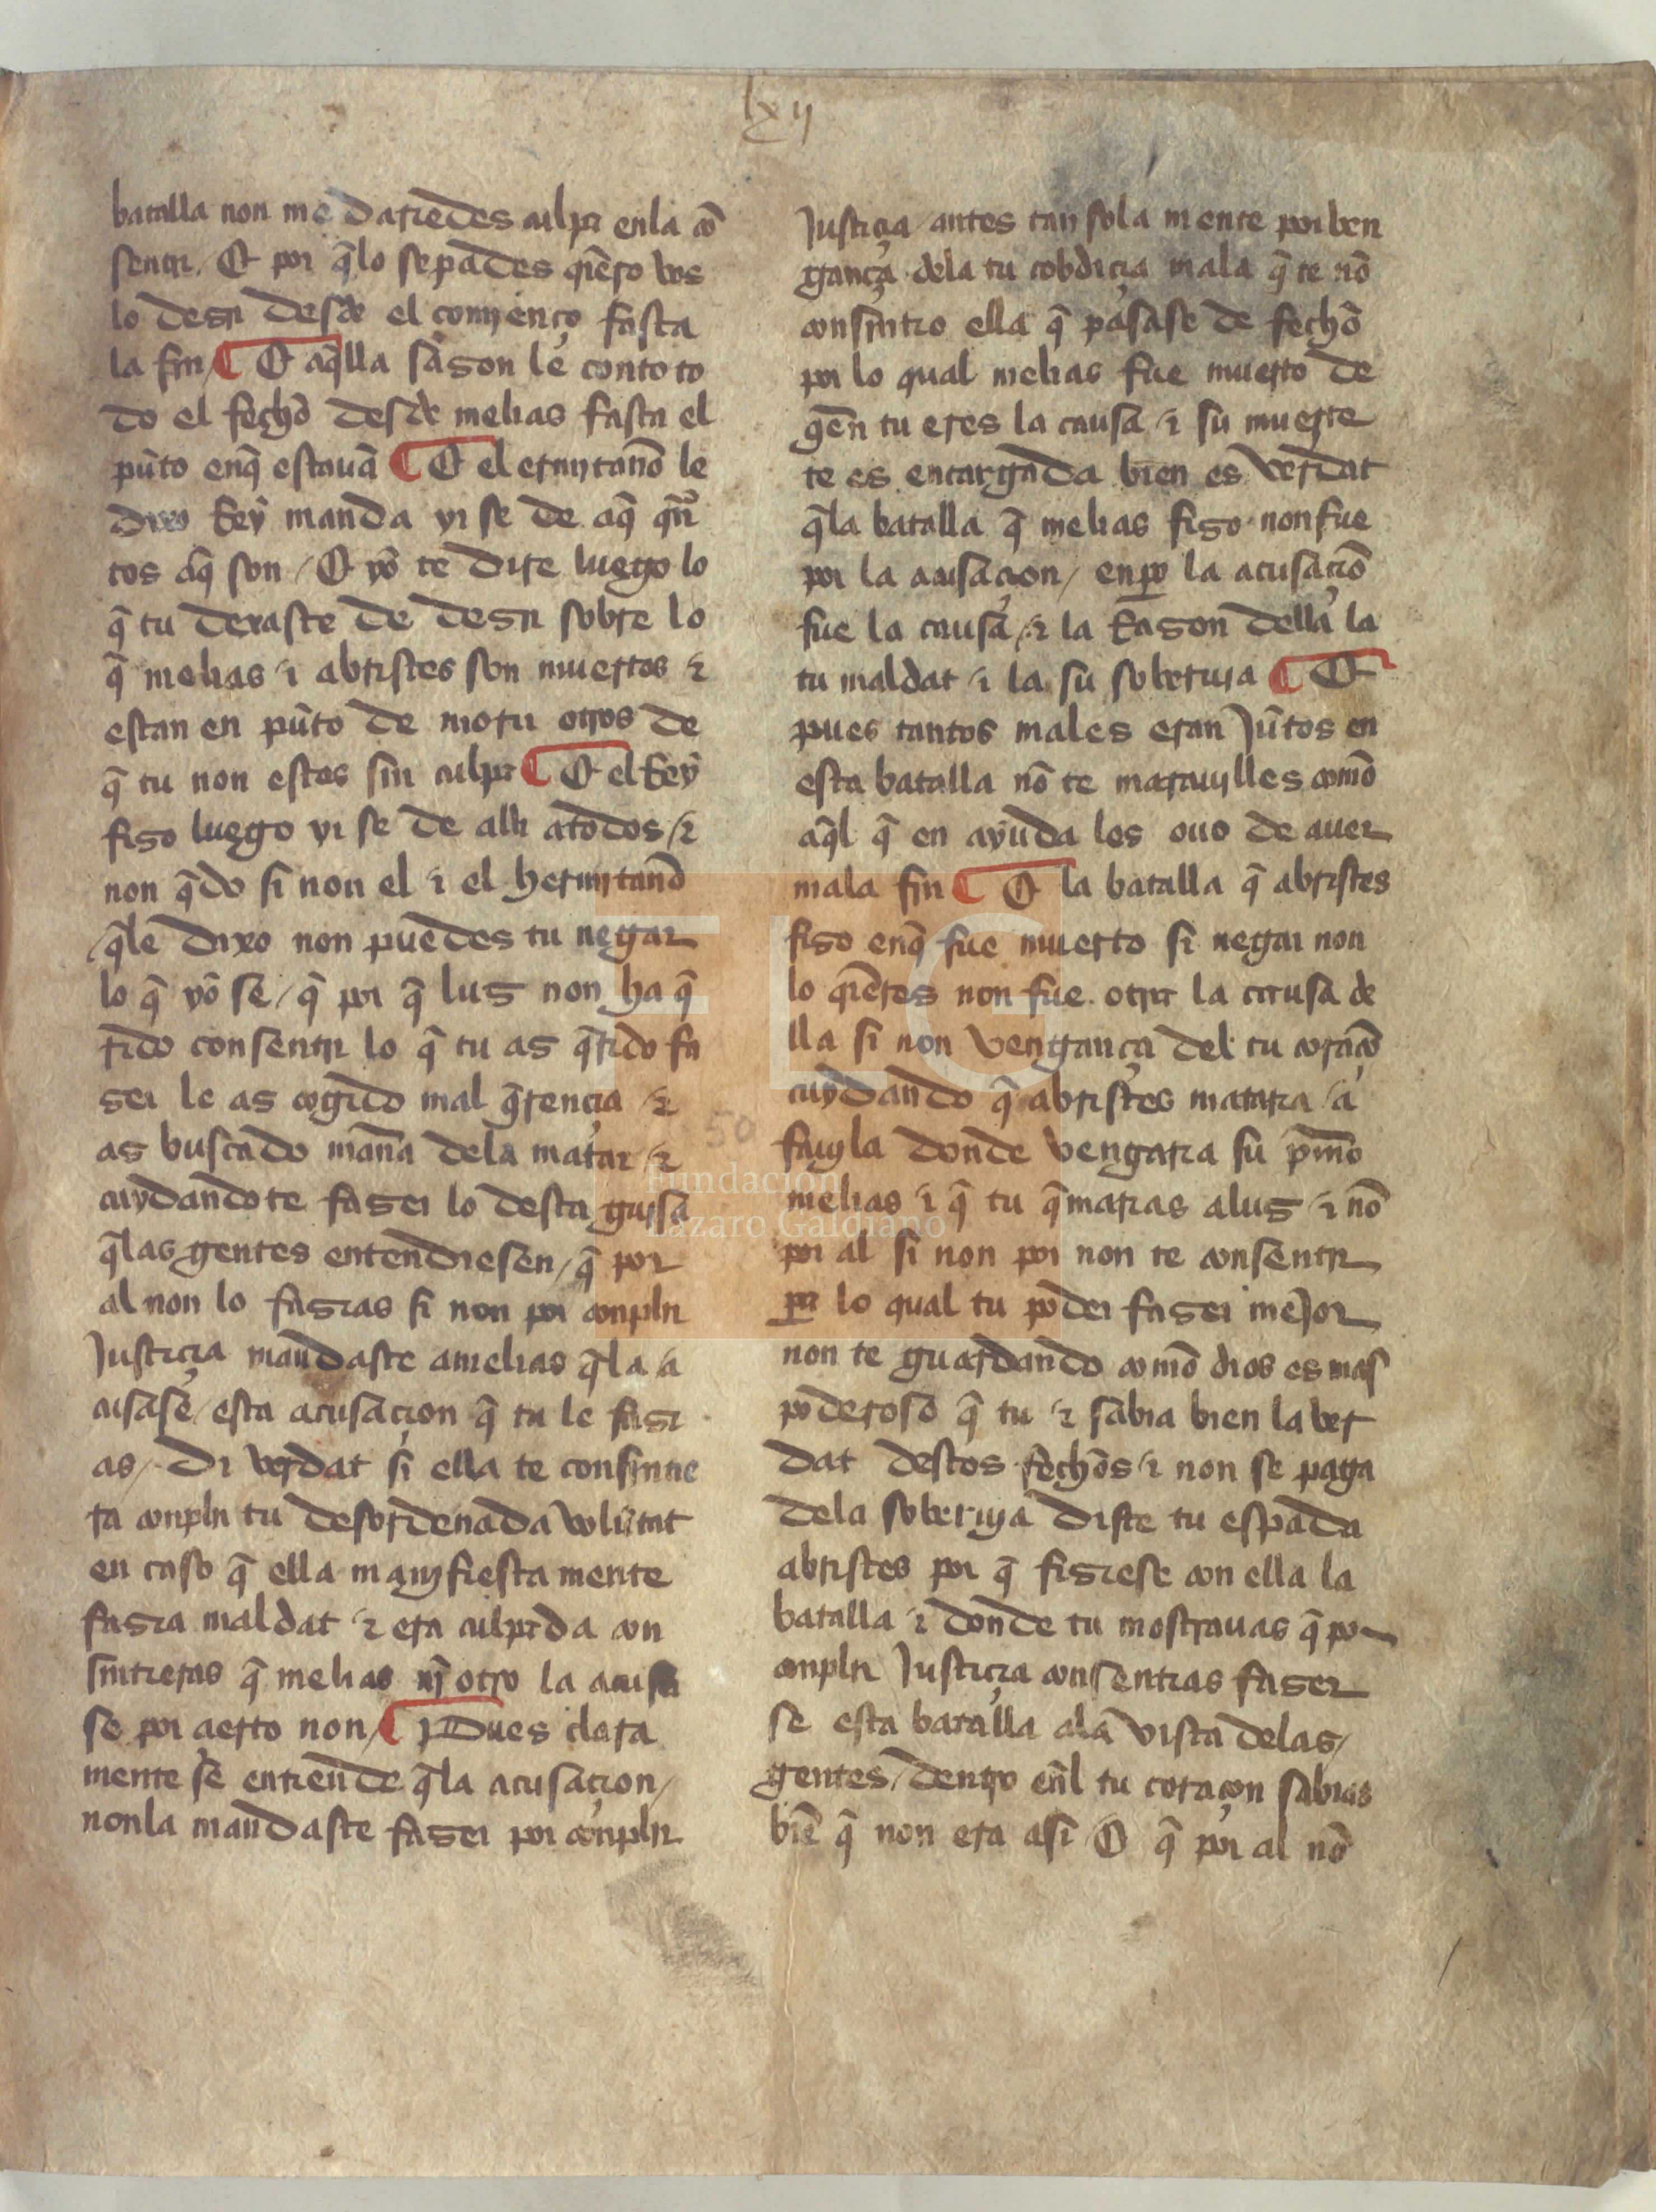 lxij
batalla non me dariedes culpa enla cõ
sentir. E por q̃lo sepades q̃ero vos
lo desir desde el comienço fasta
la fin / ¶ E aq̃lla sason le conto to
do el fecho desde melias fasta el
pũto enq̃ estauã ¶ E el ermitano le
dixo Rey manda yr se de aq̃ q̃n
tos aq̃ son / E yo te dire luego lo
q̃ tu dexaste de desir sobre lo
q̃ melias ⁊ abristes son muertos ⁊
estan en pũto de morir otros de
q̃ tu non estas sin culpa ¶ E el Rey
fiso luego yr se de alli atodos / ⁊
non q̃do si non el ⁊ el hermitano
q̃le dixo non puedes tu negar
lo q̃ yo se / q̃ por q̃ lus non ha q̃
rido consentir lo q̃ tu as q̃rido fa
ser le as cogido mal q̃rençia ⁊
as buscado mana dela matar ⁊
cuydandote faser lo desta guisa
q̃las gentes entendiesen / q̃ por
al non lo fasias si non por conplir
Justiçia mandaste amelias q̃la a
cusase / esta acusaçion q̃ tu le fasi
as / Di verdat si ella te consintie
ra conplir tu desordenada volũtat
en caso q̃ ella manifiesta mente
fasia maldat ⁊ era culpada con
sintieras q̃ melias nj otro la acusa
se por çierto non / ¶ Pues clara
mente se entiende q̃la acusaçion /
nonla mandaste faser por conplir
Justiçia / antes tan sola mente por ven
gança dela tu cobdiçia mala q̃ te nõ
consintio ella q̃ pasase de fecho
por lo qual melias fue muerto de
q̃en tu eres la causa ⁊ su muerte
te es encargada bien es verdat
q̃la batalla q̃ melias fiso non fue
por la acusaçion / enpo la acusaciõ
fue la causa / ⁊ la Rason della la
tu maldat ⁊ la su soberuia ¶ E
pues tantos males eran Jũtos en
esta batalla nõ te marauylles como
aq̃l q̃ en ayuda les ouo de auer
mala fin ¶ E la batalla q̃ abristes
fiso enq̃ fue muerto si negar non
lo q̃eres non fue otra la causa de
lla si non vengança del tu coraçõ
cuydando q̃ abristes mataria a
fuyla donde vengaria su p̃mo
melias ⁊ q̃ tu q̃marias alus ⁊ nõ
por al si non por non te consentir
por lo qual tu poder faser meJor
non te guardando como dios es mas
poderoso q̃ tu ⁊ sabia bien la ver
dat destos fechos ⁊ non se paga
dela soberuja diste tu espada
abristes por q̃ fisiese con ella la
batalla ⁊ donde tu mostrauas q̃ por
conplir Justiçia consentias faser
se esta batalla ala vista delas /
gentes / dentro enl tu coraçon sabias
biẽ q̃ non era asi O q̃ por al nõ
FLG
Fundación
Lázaro Galdiano